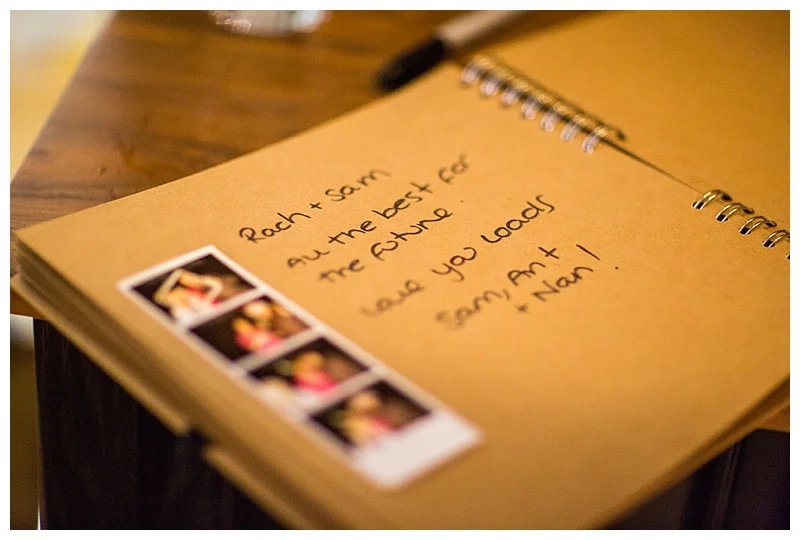 Rach + Sam
All the best for
the future.
Love you loads
Sam, Ant
+ Nan!